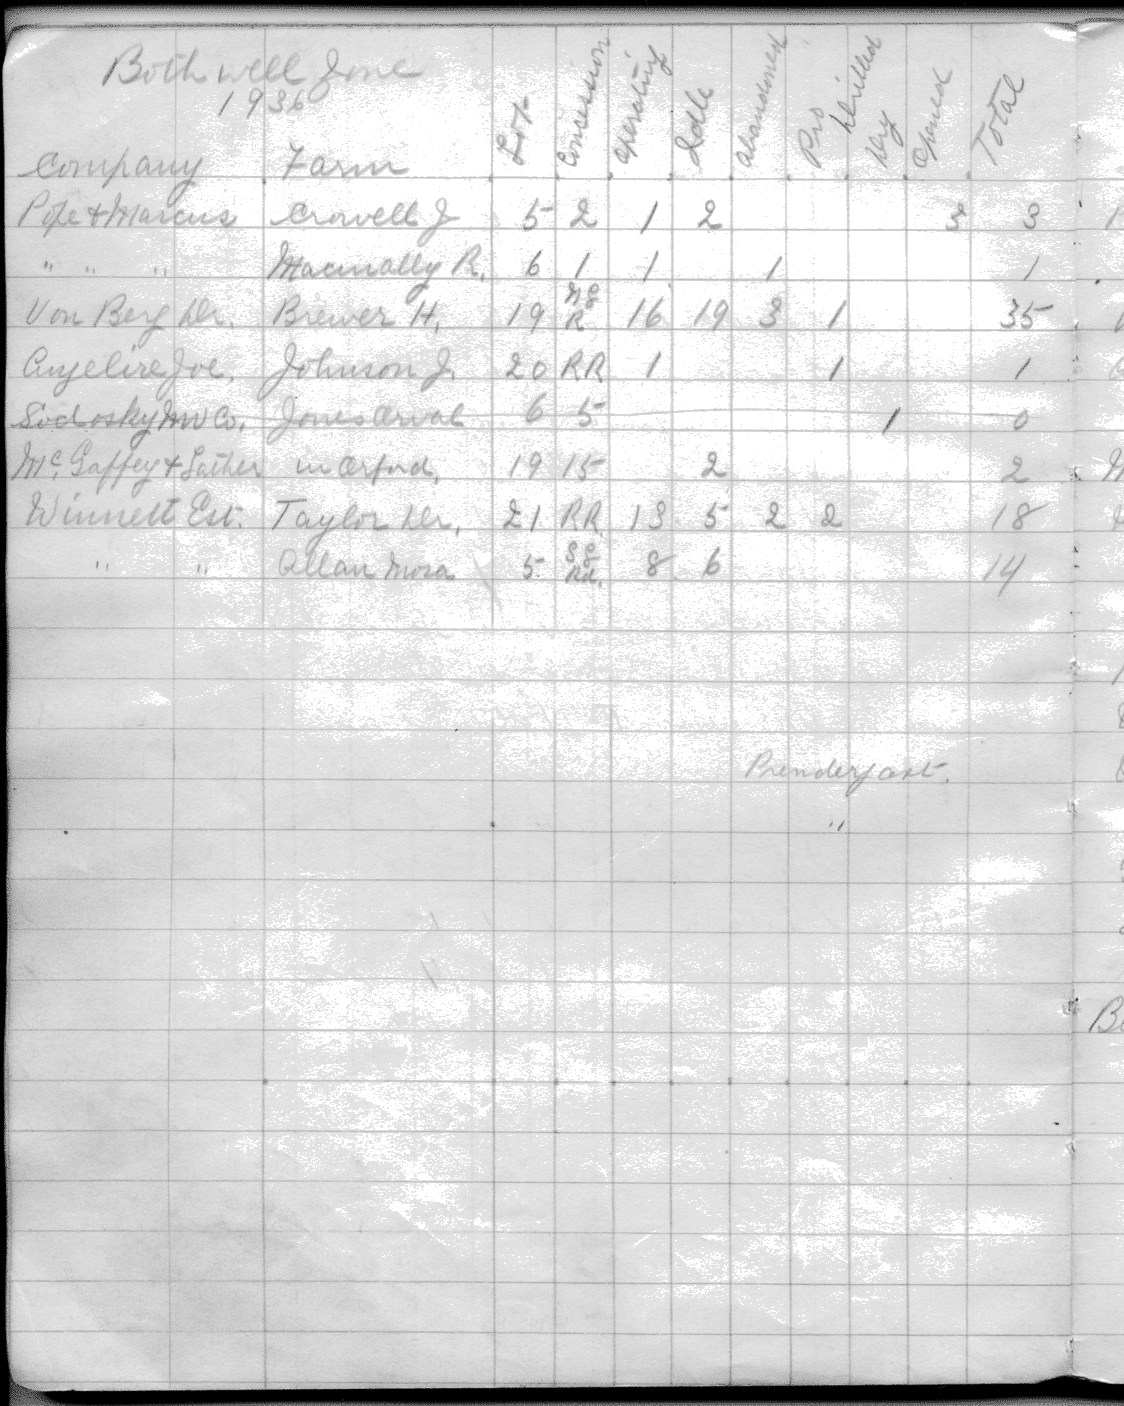 Bothwell Zone
1936
Company Farm Lot Concession Operating Idle Abandoned Pro Drilled Dry Opened Total
Pope & Marcus Crowell J 5 2 1 2 3 3
" " " Macinally R. 6 1 1 1 1
Von Berg Dr. Brewer H. 19 R 16 19 3 1 35
Angelire Joe. Johnson J. 20 RR 1 1 1
Sodosky Inv Co. Jones Orval 6 5 1 0
Mc Gaffey & in Orford, 19 15 2 2
Winnett Est. Taylor Dr. 21 RR 13 5 2 2 18
" " Allan Mora 5 Rd. 8 6 14
Prendergast.
"